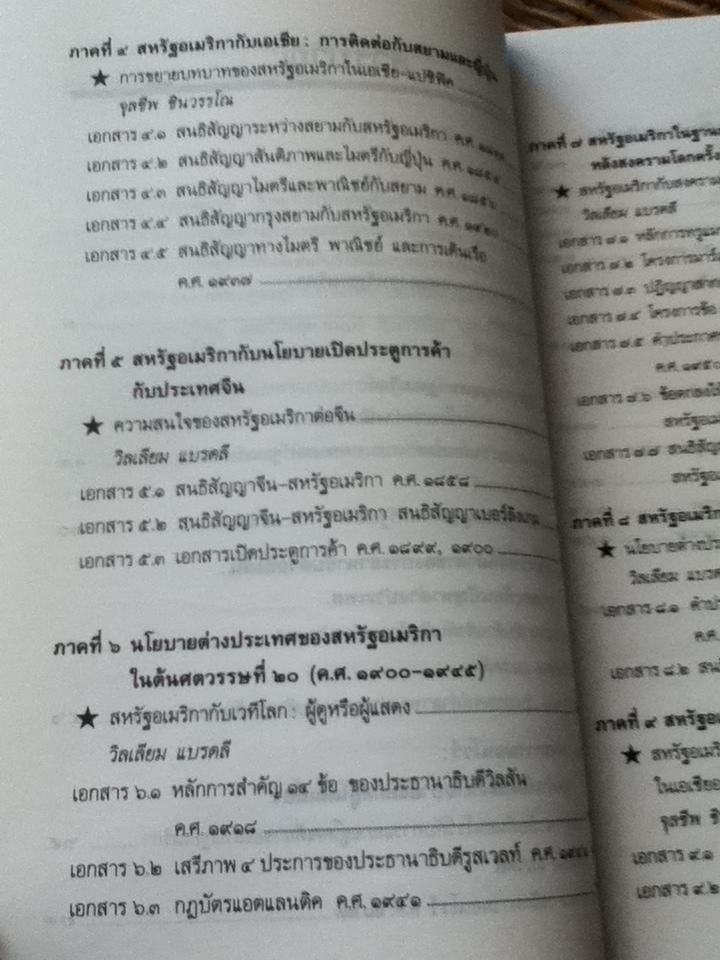 ภาคที่ ๔ สหรัฐอเมริกากับเอเชีย : การติดต่อกับสยามและญี่ปุ่น
★ การขยายบทบาทของสหรัฐอเมริกาในเอเชีย-แปซิฟิค
จุลชีพ ชินวรรโณ
เอกสาร ๔.๑ สนธิสัญญาระหว่างสยามกับสหรัฐอเมริกา ค.ศ.
เอกสาร ๔.๒ สนธิสัญญาสันติภาพและไมตรีกับญี่ปุ่น ค.ศ. ๑๘๕๔
เอกสาร ๔.๓ สนธิสัญญาไมตรีและพาณิชย์กับสยาม ค.ศ. ๑๘๕๖
เอกสาร ๔.๔ สนธิสัญญากรุงสยามกับสหรัฐอเมริกา ค.ศ. ๑๙๒๐
เอกสาร ๔.๕ สนธิสัญญาทางไมตรี พาณิชย์ และการเดินเรือ
ค.ศ. ๑๙๓๗
ภาคที่ ๕ สหรัฐอเมริกากับนโยบายเปิดประตูการค้า
กับประเทศจีน
★ ความสนใจของสหรัฐอเมริกาต่อจีน
วิลเลียม แบรดลี
เอกสาร ๕.๑ สนธิสัญญาจีน-สหรัฐอเมริกา ค.ศ. ๑๘๕๘
เอกสาร ๕.๒ สนธิสัญญาจีน-สหรัฐอเมริกา สนธิสัญญาเบอร์ลิงเกม
เอกสาร ๕.๓ เอกสารเปิดประตูการค้า ค.ศ. ๑๘๙๙, ๑๙๐๐
ภาคที่ ๖ นโยบายต่างประเทศของสหรัฐอเมริกา
ในต้นศตวรรษที่ ๒๐ (ค.ศ. ๑๙๐๐-๑๙๔๕)
★ สหรัฐอเมริกากับเวทีโลก : ผู้ดูหรือผู้แสดง
วิลเลียม แบรดลี
เอกสาร ๖.๑ หลักการสำคัญ ๑๔ ข้อ ของประธานาธิบดีวิลสัน
ค.ศ. ๑๙๑๘
เอกสาร ๖.๒ เสรีภาพ ๔ ประการของประธานาธิบดีรูสเวลท์ ค.ศ.
เอกสาร ๖.๓ กฎบัตรแอตแลนติค ค.ศ. ๑๙๔๑
ภาคที่ ๗ สหรัฐอเมริกาในฐานะ
หลังสงครามโลกครั้ง
★ สหรัฐอเมริกากับสงคราม
วิลเลียม แบรดลี
เอกสาร ๗.๑ หลักการทรูแมน
เอกสาร ๗.๒ โครงการมาร์
เอกสาร ๗.๓ ปฏิญญา
เอกสาร ๗.๔ โครงการข้อ
เอกสาร ๗.๕ คำประกาศ
ค.ศ. ๑๙๕๐
เอกสาร ๗.๖ ข้อตกลง
สหรัฐอเม
เอกสาร ๗.๗ สนธิสัญ
สหรัฐอ
ภาคที่ ๘ สหรัฐอเมริก
★ นโยบายต่างประ
วิลเลียม แบรด
เอกสาร ๘.๑ คำป
ค.ศ.
เอกสาร ๘.๒ สน
ภาคที่ ๙ สหรัฐอเ
★ สหรัฐอเมริ
ในเอเชีย
จุลชีพ ชิ
เอกสาร ๙.๑
เอกสาร ๙.๒